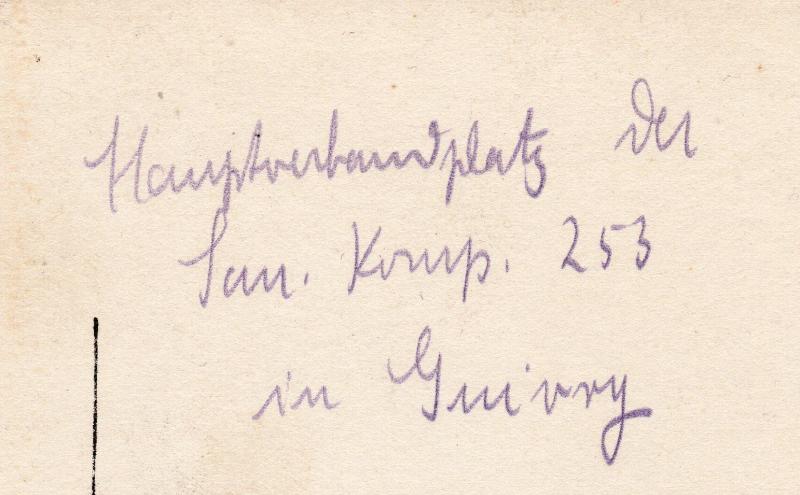 Hauptverbandplatz der
San. Komp. 253
in Guivry